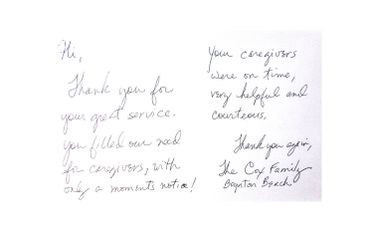 Hi,
Thank you for
your great service.
you filled our need
for caregivers, with
only a moments notice!
Your caregivers
were on time,
very helpful and
courteous.
Thank you again,
The Cox Family
Boynton Beach